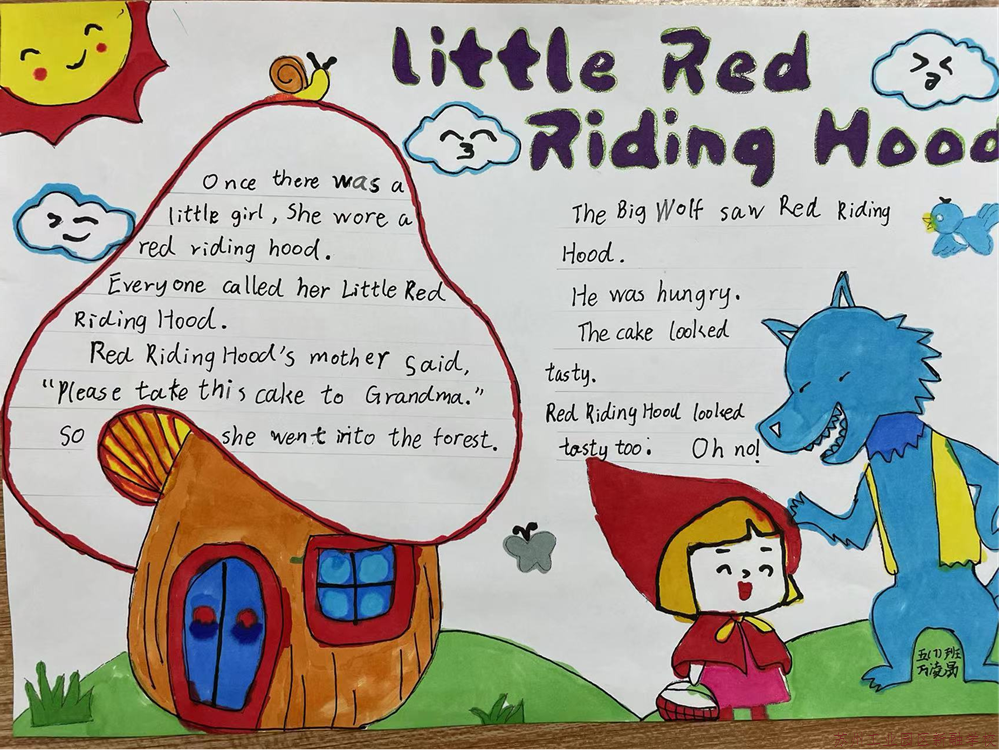 Little Red
Riding Hood
Once there was a
little girl, She wore a
red riding hood.
Everyone called her Little Red
Riding Hood.
Red Riding Hood's mother said,
"Please take this cake to Grandma."
So she went into the forest.
The Big Wolf saw Red Riding
Hood.
He was hungry.
The cake looked
tasty.
Red Riding Hood looked
tasty too. Oh no!